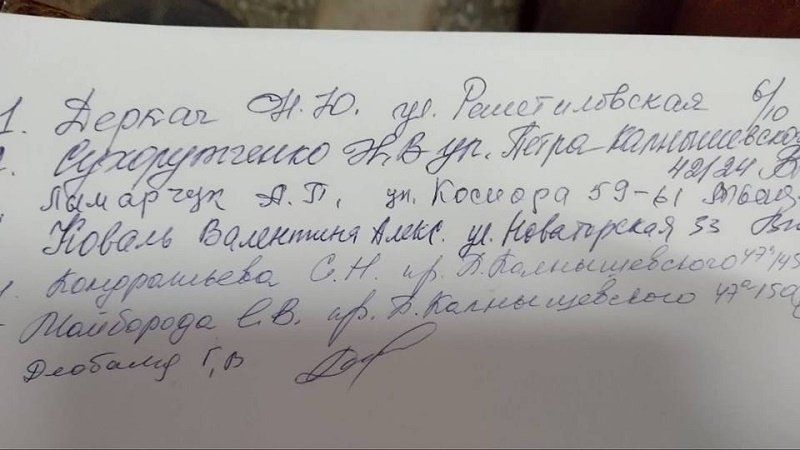 1. Деркач Н.Ю. ул. Решетиловская 6/10
Сухорутченко Н.В ул. Петра Калнышевско
42/24
Лымарчук А.П. ул. Космодa 59-61
Коваль Валентина Алекс. ул. Новаторская 33
Кондратьева С.Н. пр. П.Калнышевского 47а/145
Майборода С.В. пр. П.Калнышевского 47а-15
Г,В